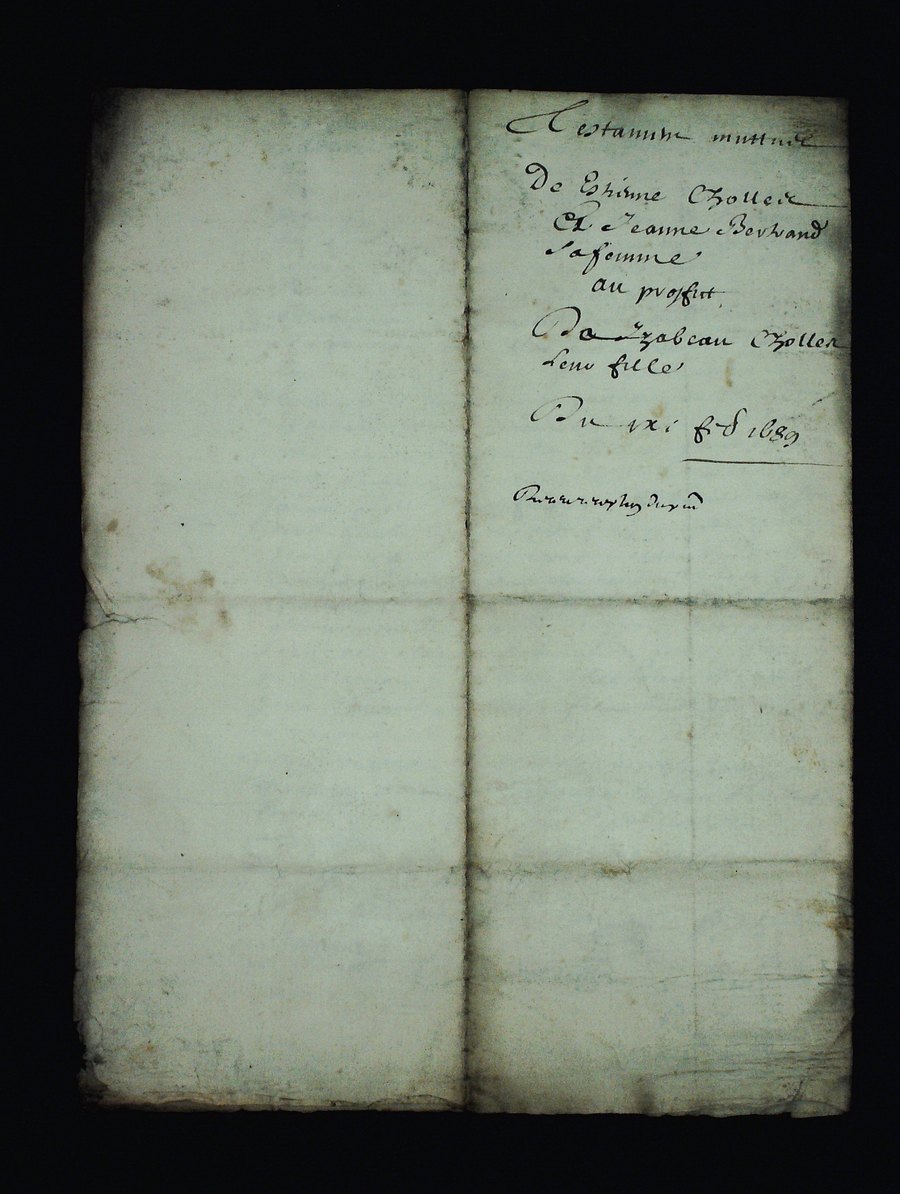 Testament muttuel
De Estienne Chollet
Et Jeanne Bertrand
sa femme
au proffict
De Izabeau Chollet
Leur fille
Du ixe feb 1689